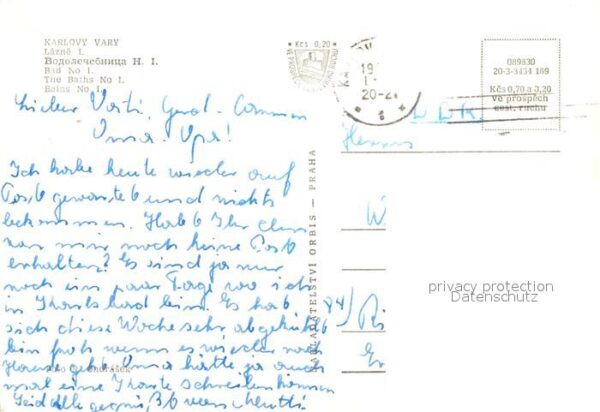 KARLOVY VARY
Lázně I.
Водолечебница Н. I.
Bad No I.
The Baths No 1.
Bains No I.
Kčs 0,20
20-21
089830
20-3-3434 169
Kčs 0,70 a 3,20
ve prospěch
cest. ruchu
Lieber Vati, Gerd-
Oma. Opa!
Ich habe heute wieder auf
Post gewartet und nichts
bekommen. Habt Ihr denn
von mir noch keine Post
erhalten? Es sind ja nur
noch ein paar Tage wo ich
in Karlsbad bin. Es hat
sich diese Woche sehr abgekühlt
bin froh wenn es wieder nach
Hause geht. Oma hätte ja auch
mal eine Karte schreiben können
Seid alle gegrüßt von Mutti.
NAKLADATELSTVÍ ORBIS — PRAHA
Dvořáček
DDR.
Herrn
W
84) Ri
privacy protection
Datenschutz